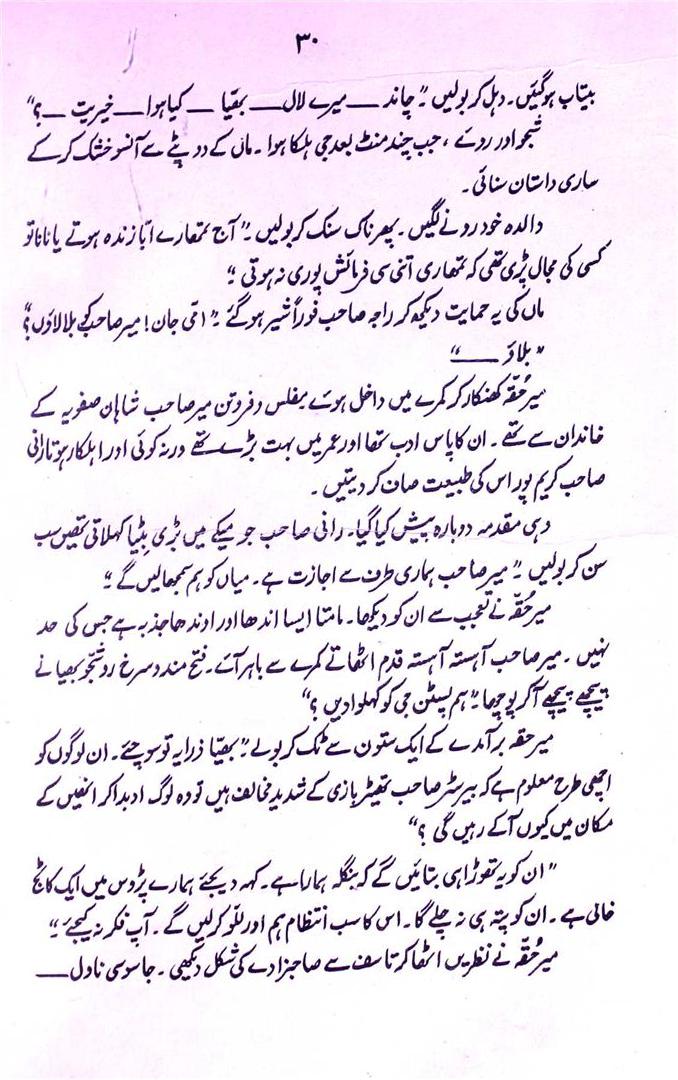 ۳۰
بیتاب ہوگئیں۔ دہل کر بولیں "چاند ــــ میرے لال ــــ بھیّا ــــ کیا ہوا ــــ خیریت ــــ؟"
شبّو اور روئے، جب چند منٹ بعد جی ہلکا ہوا۔ ماں کے دوپٹے سے آنسو خشک کر کے
ساری داستان سنائی۔
والدہ خود رونے لگیں۔ پھر ناک سنک کر بولیں۔ "آج تمھارے ابّا زندہ ہوتے یا نانا تو
کسی کی مجال پڑی تھی کہ تمھاری اتنی سی فرمائش پوری نہ ہوتی۔"
ماں کی یہ حمایت دیکھ کر راجہ صاحب فوراً شیر ہو گئے۔ "امّی جان! میر صاحب کو بلا لاؤں؟"
"بلاؤ ــــ"
میر حُقّہ کھنکار کر کمرے میں داخل ہوئے۔ مفلس و فروتن میر صاحب شاہان صفویہ کے
خاندان سے تھے۔ ان کا پاس ادب تھا اور عمر میں بہت بڑے تھے ورنہ کوئی اور اہلکار ہوتا رانی
صاحب کریم پور اس کی طبیعت صاف کر دیتیں۔
وہی مقدمہ دوبارہ پیش کیا گیا۔ رانی صاحب جو میکے میں بڑی بٹیا کہلاتی تھیں سب
سن کر بولیں۔ "میر صاحب ہماری طرف سے اجازت ہے۔ میاں کو ہم سمجھا لیں گے۔"
میر حُقّہ نے تعجب سے ان کو دیکھا۔ مامتا ایسا اندھا اور اوندھا جذبہ ہے جس کی حد
نہیں۔ میر صاحب آہستہ آہستہ قدم اٹھاتے کمرے سے باہر آئے۔ فتح مند و سرخ رو شبّو بھیا نے
پیچھے پیچھے آکر پوچھا۔ "ہم پسٹن جی کو کہلوا دیں؟"
میر حقہ برآمدے کے ایک ستون سے ٹک کر بولے "بھیّا ذرا یہ تو سوچئے۔ ان لوگوں کو
اچھی طرح معلوم ہے کہ بیرسٹر صاحب تھیٹر بازی کے شدید مخالف ہیں تو وہ لوگ ادبدا کر انھیں کے
مکان میں کیوں آکے رہیں گی؟"
"ان کو یہ تھوڑا ہی بتائیں گے کہ بنگلہ ہمارا ہے۔ کہہ دیجئے ہمارے پڑوس میں ایک کاٹج
خالی ہے۔ ان کو پتہ ہی نہ چلے گا۔ اس کا سب انتظام ہم اور للّو کر لیں گے۔ آپ فکر نہ کیجئے۔"
میر حُقّہ نے نظریں اٹھا کر تاسف سے صاحبزادے کی شکل دیکھی۔ جاسوسی ناول ــــ